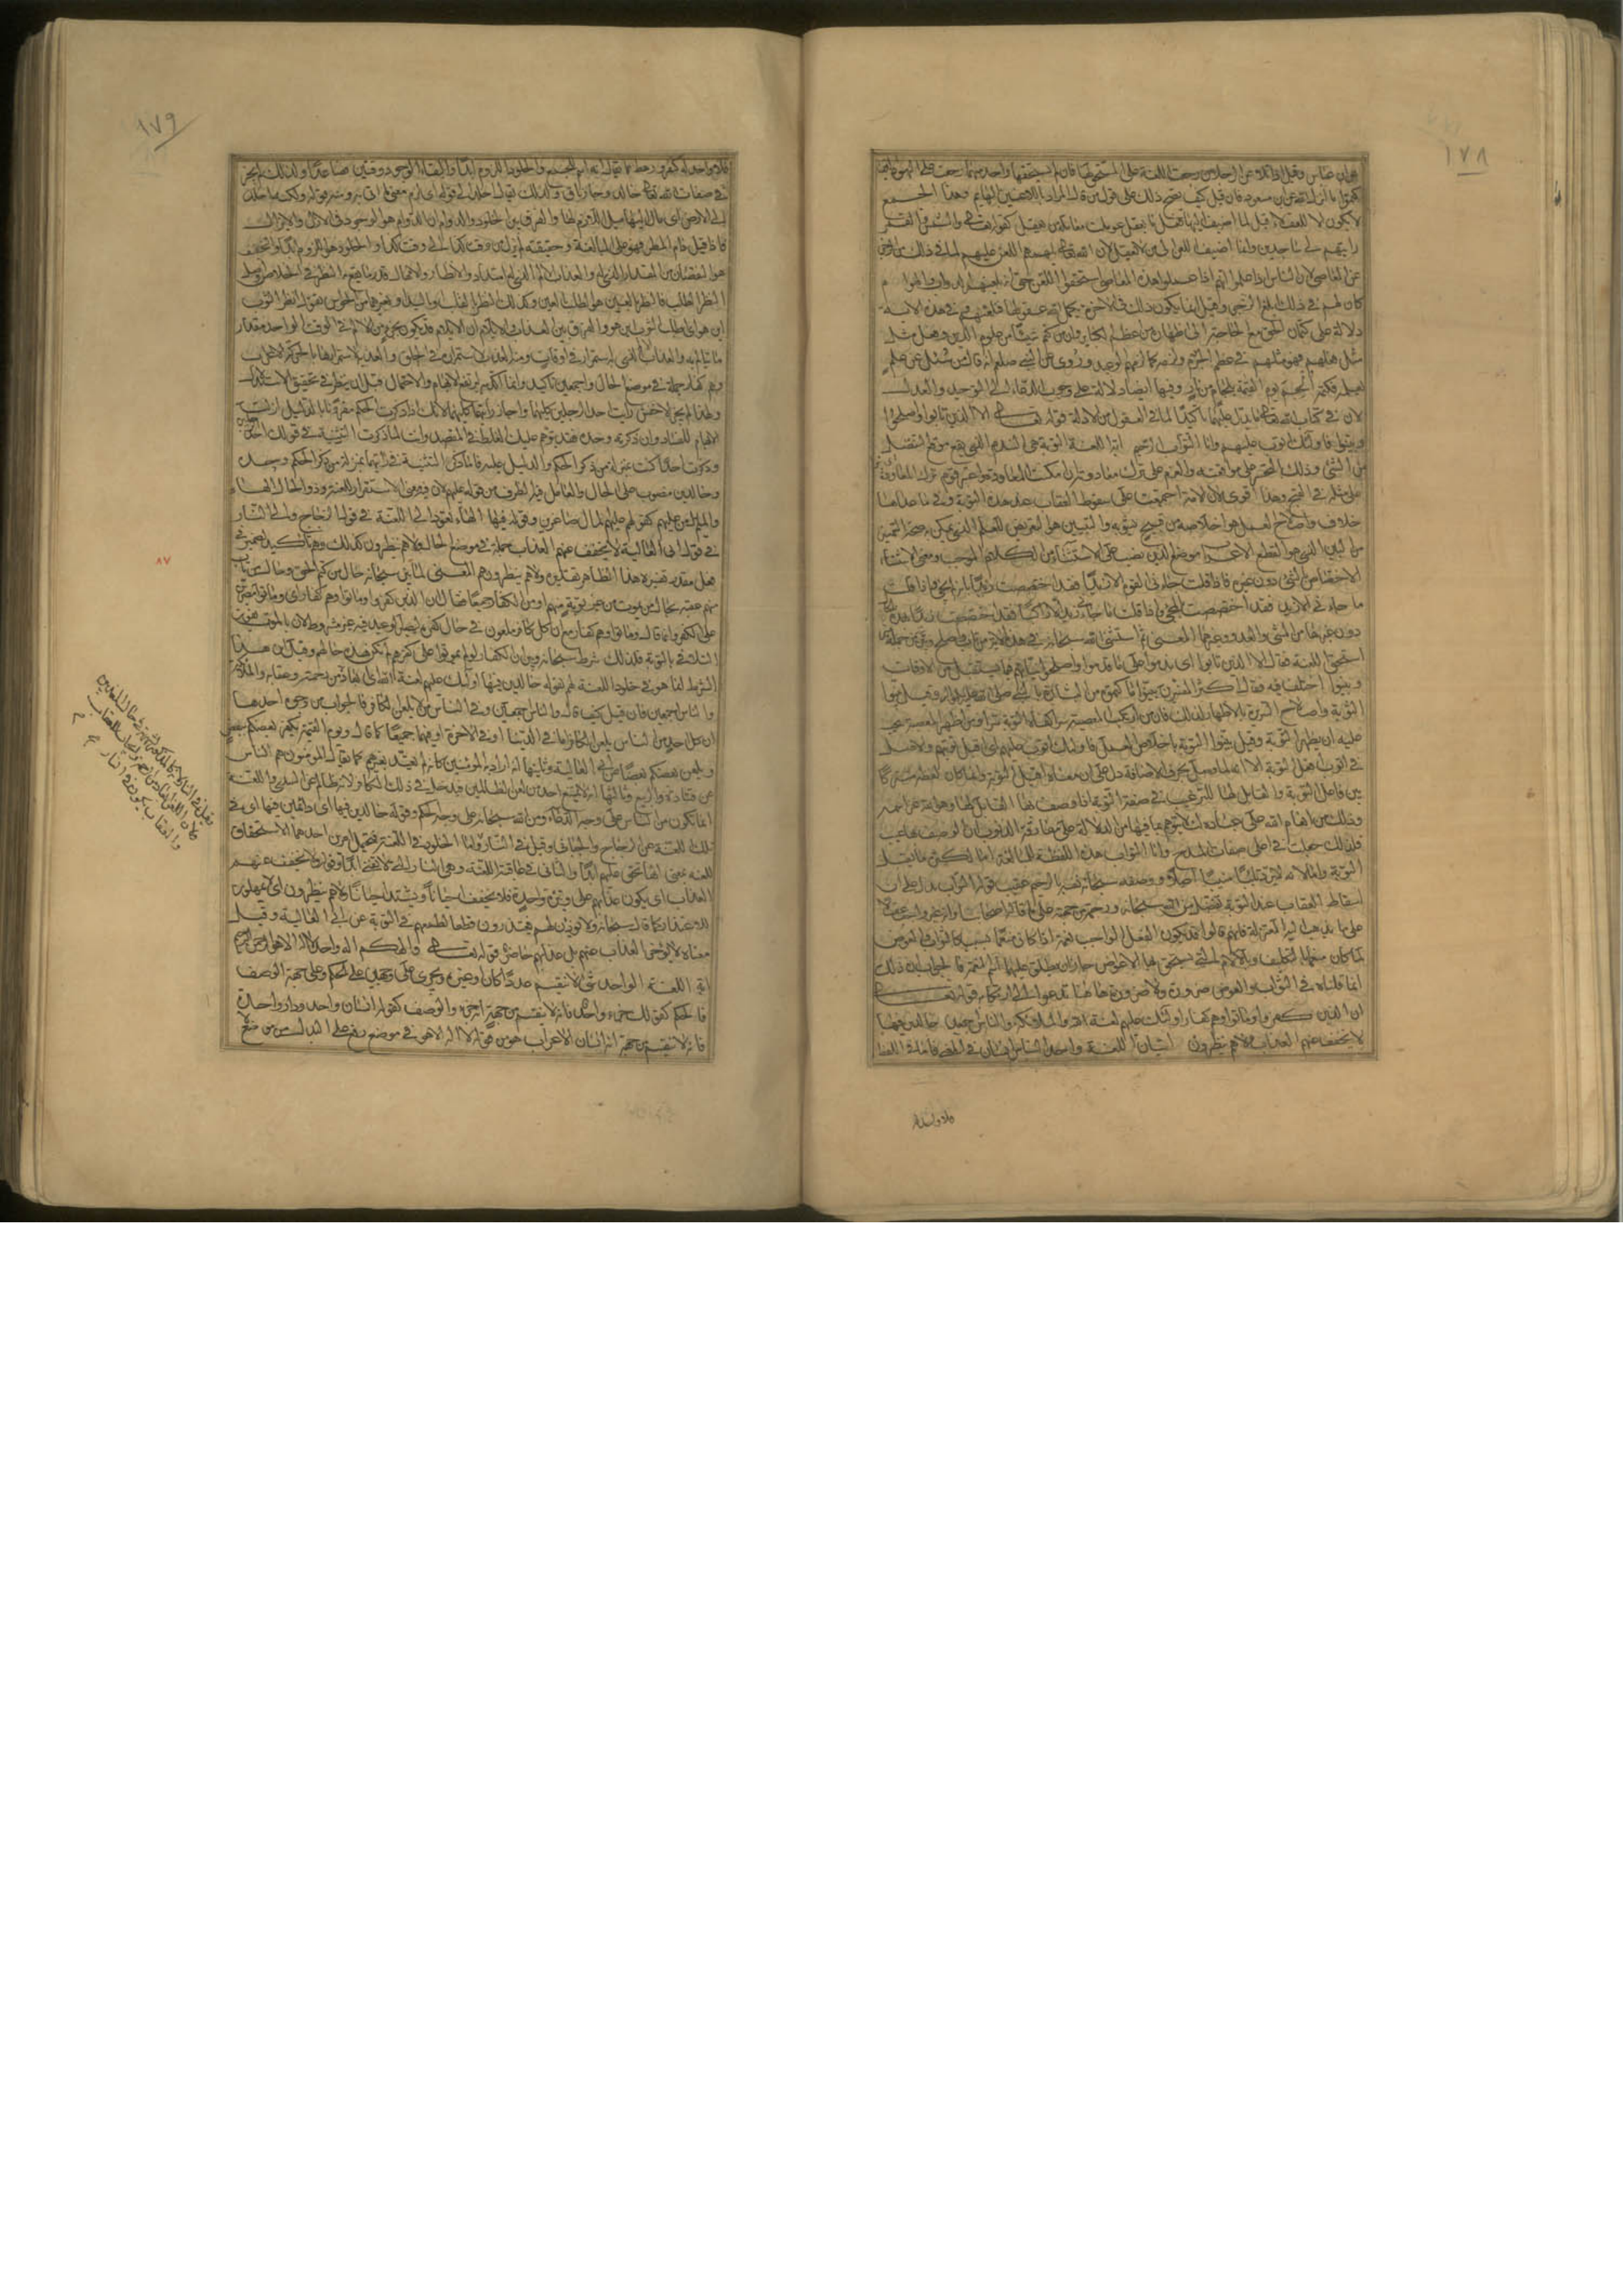 ١٧٨
عن ابن عباس وقيل اذا تلاعن الرجلان رجعت اللعنة على المستحق لها فان لم يستحقها واحد منهما رجعت على اليهود الذين
كتموا ما انزل الله عن ابن مسعود فان قيل كيف يصح ذلك على قول من قال المراد باللاعنين البهايم وهذا الجمع
لا يكون الا للعقلاء قيل لما اضيف اليها فعل ما يعقل عوملت معاملة من يعقل كقوله تعالى والشمس والقمر
رايتهم لي ساجدين وانما اضيف اللعن الى من لا يعقل لان الله تعالى يلهمهم اللعن عليهم لما في ذلك من الزجر
عن المعاصي لان الناس اذا علموا انهم اذا عملوا هذه المعاصي استحقوا اللعن حتى انه يلعنهم الدواب والهوام
كان لهم في ذلك ابلغ الزجر وقيل انما يكون ذلك في الاخرة يكمل الله عقولها فتلعنهم وفي هذه الاية
دلالة على ان كتمان الحق مع الحاجة الى اظهاره من اعظم الكبائر وان من كتم شيئا من علوم الدين وفعل مثل
فعلهم فهو مثلهم في عظم الجرم ويلزمه كما لزمهم الوعيد وروي عن النبي صلعم انه قال من سئل عن علم
يعلمه فكتمه الجم يوم القيمة بلجام من نار وفيها ايضا دلالة على وجوب الدعاء الى التوحيد والعدل
لان في كتاب الله تعالى ما يدل عليهما تاكيدا لما في العقول من الادلة قوله تعالى الا الذين تابوا واصلحوا
وبينوا فاولئك اتوب عليهم وانا التواب الرحيم اية اللغة التوبة هي الندم الذي يقع موقع التنصل
من الشيء وذلك بالتحسر على مواقعته والعزم على ترك معاودته ان امكنت المعاودة واعتبر قوم ترك المعاودة
على مثله في القبح وهذا اقوى لان الامة اجمعت على سقوط العقاب عند هذه التوبة وفي ما عداها
خلاف واصلاح العمل هو اخلاصه من قبيح يشوبه والتبيين هو التعريض للعلم الذي يمكن به صحة التمييز
من البين الذي هو القطع الاعراب موضع الذين نصب على الاستثناء من الكلام الموجب ومعنى الاستثناء
الاختصاص بالشيء دون غيره فاذا قلت جاءني القوم الا زيدا فقد اختصصت زيدا بانه لم يجيء واذا قلت
ما جاءني الا زيد فقد اختصصته بالمجيء واذا قلت ما جاءني زيد الا راكبا فقد اختصصت زيدا بهذه
دون غيرها من المشي والعدو وغيرهما المعنى ثم استثنى الله سبحانه في هذه الاية من تاب واصلح وبين من جملة
استحق اللعنة فقال الا الذين تابوا اي ندموا على ما قدموا واصلحوا نياتهم فيما يستقبل من الاوقات
وبينوا اختلف فيه فقال اكثر المفسرين بينوا ما كتموه من البشارة بالنبي صلى الله عليه واله وقيل بينوا
التوبة واصلاح السريرة بالاظهار لذلك فان من ارتكب المعصية سرا كفاه التوبة سرا ومن اظهر المعصية يجب
عليه ان يظهر التوبة وقيل بينوا التوبة باخلاص العمل فاولئك اتوب عليهم اي اقبل توبتهم والاصل
في اتوب افعل التوبة الا انه لما وصل بحرف الاضافة دل على ان معناه اقبل التوبة وانما كان لفظه مشتركا
بين فاعل التوبة والقابل لها للترغيب في صفة التوبة اذ وصف بها القابل لها وهو الله عز اسمه
وذلك من انعام الله على عباده لئلا يتوهم ما فيها من الدلالة على مقارفة الذنوب ان الوصف بها عيب
فلذلك جعلت في اعلى صفات المدح وانا التواب هذه اللفظة للمبالغة اما لكثرة ما يقبل
التوبة واما لانه لا يرد تائبا منيبا اصلا ووصفه سبحانه نفسه بالرحيم عقيب قوله التواب يدل على ان
اسقاط العقاب عند التوبة تفضل من الله سبحانه ورحمة من جهته على ما قاله اصحابنا وانه غير واجب عقلا
على ما يذهب اليه المعتزلة فانهم قالوا قد يكون الفعل الواجب نعمة اذا كان منعما بسببه كالثواب والعوض
لما كان منعما بالتكليف وبالالام التي يستحق بها الاعواض جاز ان يطلق عليهما اسم النعمة فالجواب ان ذلك
انما قلناه في الثواب والعوض ضرورة ولا ضرورة هاهنا تدعو الى ارتكابه قوله تعالى
ان الذين كفروا وماتوا وهم كفار اولئك عليهم لعنة الله والملائكة والناس اجمعين خالدين فيها
لا يخفف عنهم العذاب ولا هم ينظرون ايتان اللغة واحد الناس انسان في المعنى فاما في اللفظ
فلا واحد له
١٧٩
فلا واحد له كنفر ورهط مما يقال انه اسم للجمع والخلود اللزوم ابدا والبقاء الوجود وقتين فصاعدا ولذلك لم يجز
في صفات الله تعالى خالد وجاز باق ولذلك يقال اخلد الى قوله اي لزم معنى ما اتى به ومنه قوله ولكنه اخلد
الى الارض اي مال اليها ميل اللازم لها والفرق بين الخلود والدوام ان الدوام هو الوجود في الازل والابد
فاذا قيل دام المطر فهو على المبالغة وحقيقته لم يزل من وقت كذا الى وقت كذا والخلود هو اللزوم ابدا والتخفيف
هو النقصان من المقدار الذي له والعذاب الالم الذي له امتداد والانظار الامهال قدر ما يقع النظر في الخلاص واصل
النظر الطلب فالنظر بالعين هو الطلب بالعين وكذلك النظر بالقلب او باليد او بغيرها من الحواس تقول انظر الثوب
اين هو اي اطلب الثوب اين هو والفرق بين العذاب والايلام ان الايلام قد يكون بجزء من الالم في الوقت الواحد مقدار
ما يتالم به والعذاب الالم الذي له استمرار في اوقات ومنه العذب لاستمراره في الحلق والعذبة لاستمرارها بالحركة الاعراب
وهم كفار جملة في موضع الحال واجمعين تاكيد وانما اكد به ليرتفع الايهام والاحتمال قبل ان ينظر في تحقيق الاستدلال
ولهذا لم يجز الاخفش رايت احد الرجلين كليهما واجاز رايتهما كليهما لانك اذا ذكرت الحكم مقرونا بالدليل ازلت
الايهام للفساد وان ذكرته وحده فقد يتوهم عليك الغلط في المقصد وانت لما ذكرت التثنية في قولك احد الرجلين
وذكرت احدا كنت بمنزلة من ذكر الحكم والدليل عليه فاما ذكر التثنية في رايتهما بمنزلة من ذكر الحكم وحده
وخالدين منصوب على الحال والعامل فيه الظرف من قوله عليهم لان فيه معنى الاستقرار للعنة وذو الحال الهاء
والميم من عليهم كقولهم عليهم المال صاغرين وقوله فيها الهاء تعود الى اللعنة في قول الزجاج والى النار
في قول ابي العالية لا يخفف عنهم العذاب جملة في موضع الحال ولا هم ينظرون كذلك وهم تاكيد لضمير في
فعل مقدر يفسره هذا الظاهر تقديره ولا هم ينظرون هم المعنى لما بين سبحانه حال من كتم الحق وحال من تاب
منهم عقبه بحال من يموت من غير توبة منهم او من الكفار جميعا فقال ان الذين كفروا وماتوا وهم كفار اي وماتوا مصرين
على الكفر وانما قال وماتوا وهم كفار مع ان كل كافر ملعون في حال كفره ليصير الوعيد فيه غير مشروط لان بالموت يفوت
التلافي بالتوبة فلذلك شرط سبحانه وبين ان الكفار لو لم يموتوا على كفرهم لم تكن هذه حالهم وقيل ان هذا
الشرط انما هو في خلود اللعنة لهم بقوله خالدين فيها اولئك عليهم لعنة الله اي ابعاده من رحمته وعقابه والملائكة
والناس اجمعين فان قيل كيف قال والناس اجمعين وفي الناس من لا يلعن الكافر فالجواب من وجوه احدها
ان كل احد من الناس يلعن الكافر اما في الدنيا او في الاخرة او فيهما جميعا كما قال ويوم القيمة يكفر بعضكم ببعض
ويلعن بعضكم بعضا عن ابي العالية وثانيها انه اراد به المؤمنين كانه لم يعتد بغيرهم كما يقال المؤمنون هم الناس
عن قتادة والربيع وثالثها انه لا يمتنع احد من لعن الظالمين فيدخل في ذلك الكافر لانه ظالم عن السدي واللعنة
انما تكون من الناس على وجه الدعاء ومن الله سبحانه على وجه الحكم وقوله خالدين فيها اي دائمين فيها اي في
تلك اللعنة عن الزجاج والجبائي وقيل في النار واما الخلود في اللعنة فيحتمل امرين احدهما الاستحقاق
للعنة بمعنى انها تحق عليهم ابدا والثاني في عاقبة اللعنة وهي النار التي لا تفنى ابدا وقوله لا يخفف عنهم
العذاب اي يكون عذابهم على وتيرة واحدة فلا يخفف احيانا ويشتد احيانا ولا هم ينظرون اي لا يمهلون
للاعتذار كما قال سبحانه ولا يؤذن لهم فيعتذرون قطعا لطمعهم في التوبة عن ابي العالية وقيل
معناه لا يؤخر العذاب عنهم بل عذابهم حاضر قوله تعالى والهكم اله واحد لا اله الا هو الرحمن الرحيم
اية اللغة الواحد شيء لا ينقسم عددا كان او غيره ويجري على وجهين على الحكم وعلى جهة الوصف
فالحكم كقولك جزء واحد فانه لا ينقسم من جهة انه جزء والوصف كقولك انسان واحد ودار واحدة
فانه لا ينقسم من جهة انه انسان الاعراب هو من قوله لا اله الا هو في موضع رفع على البدل من موضع
٨٧